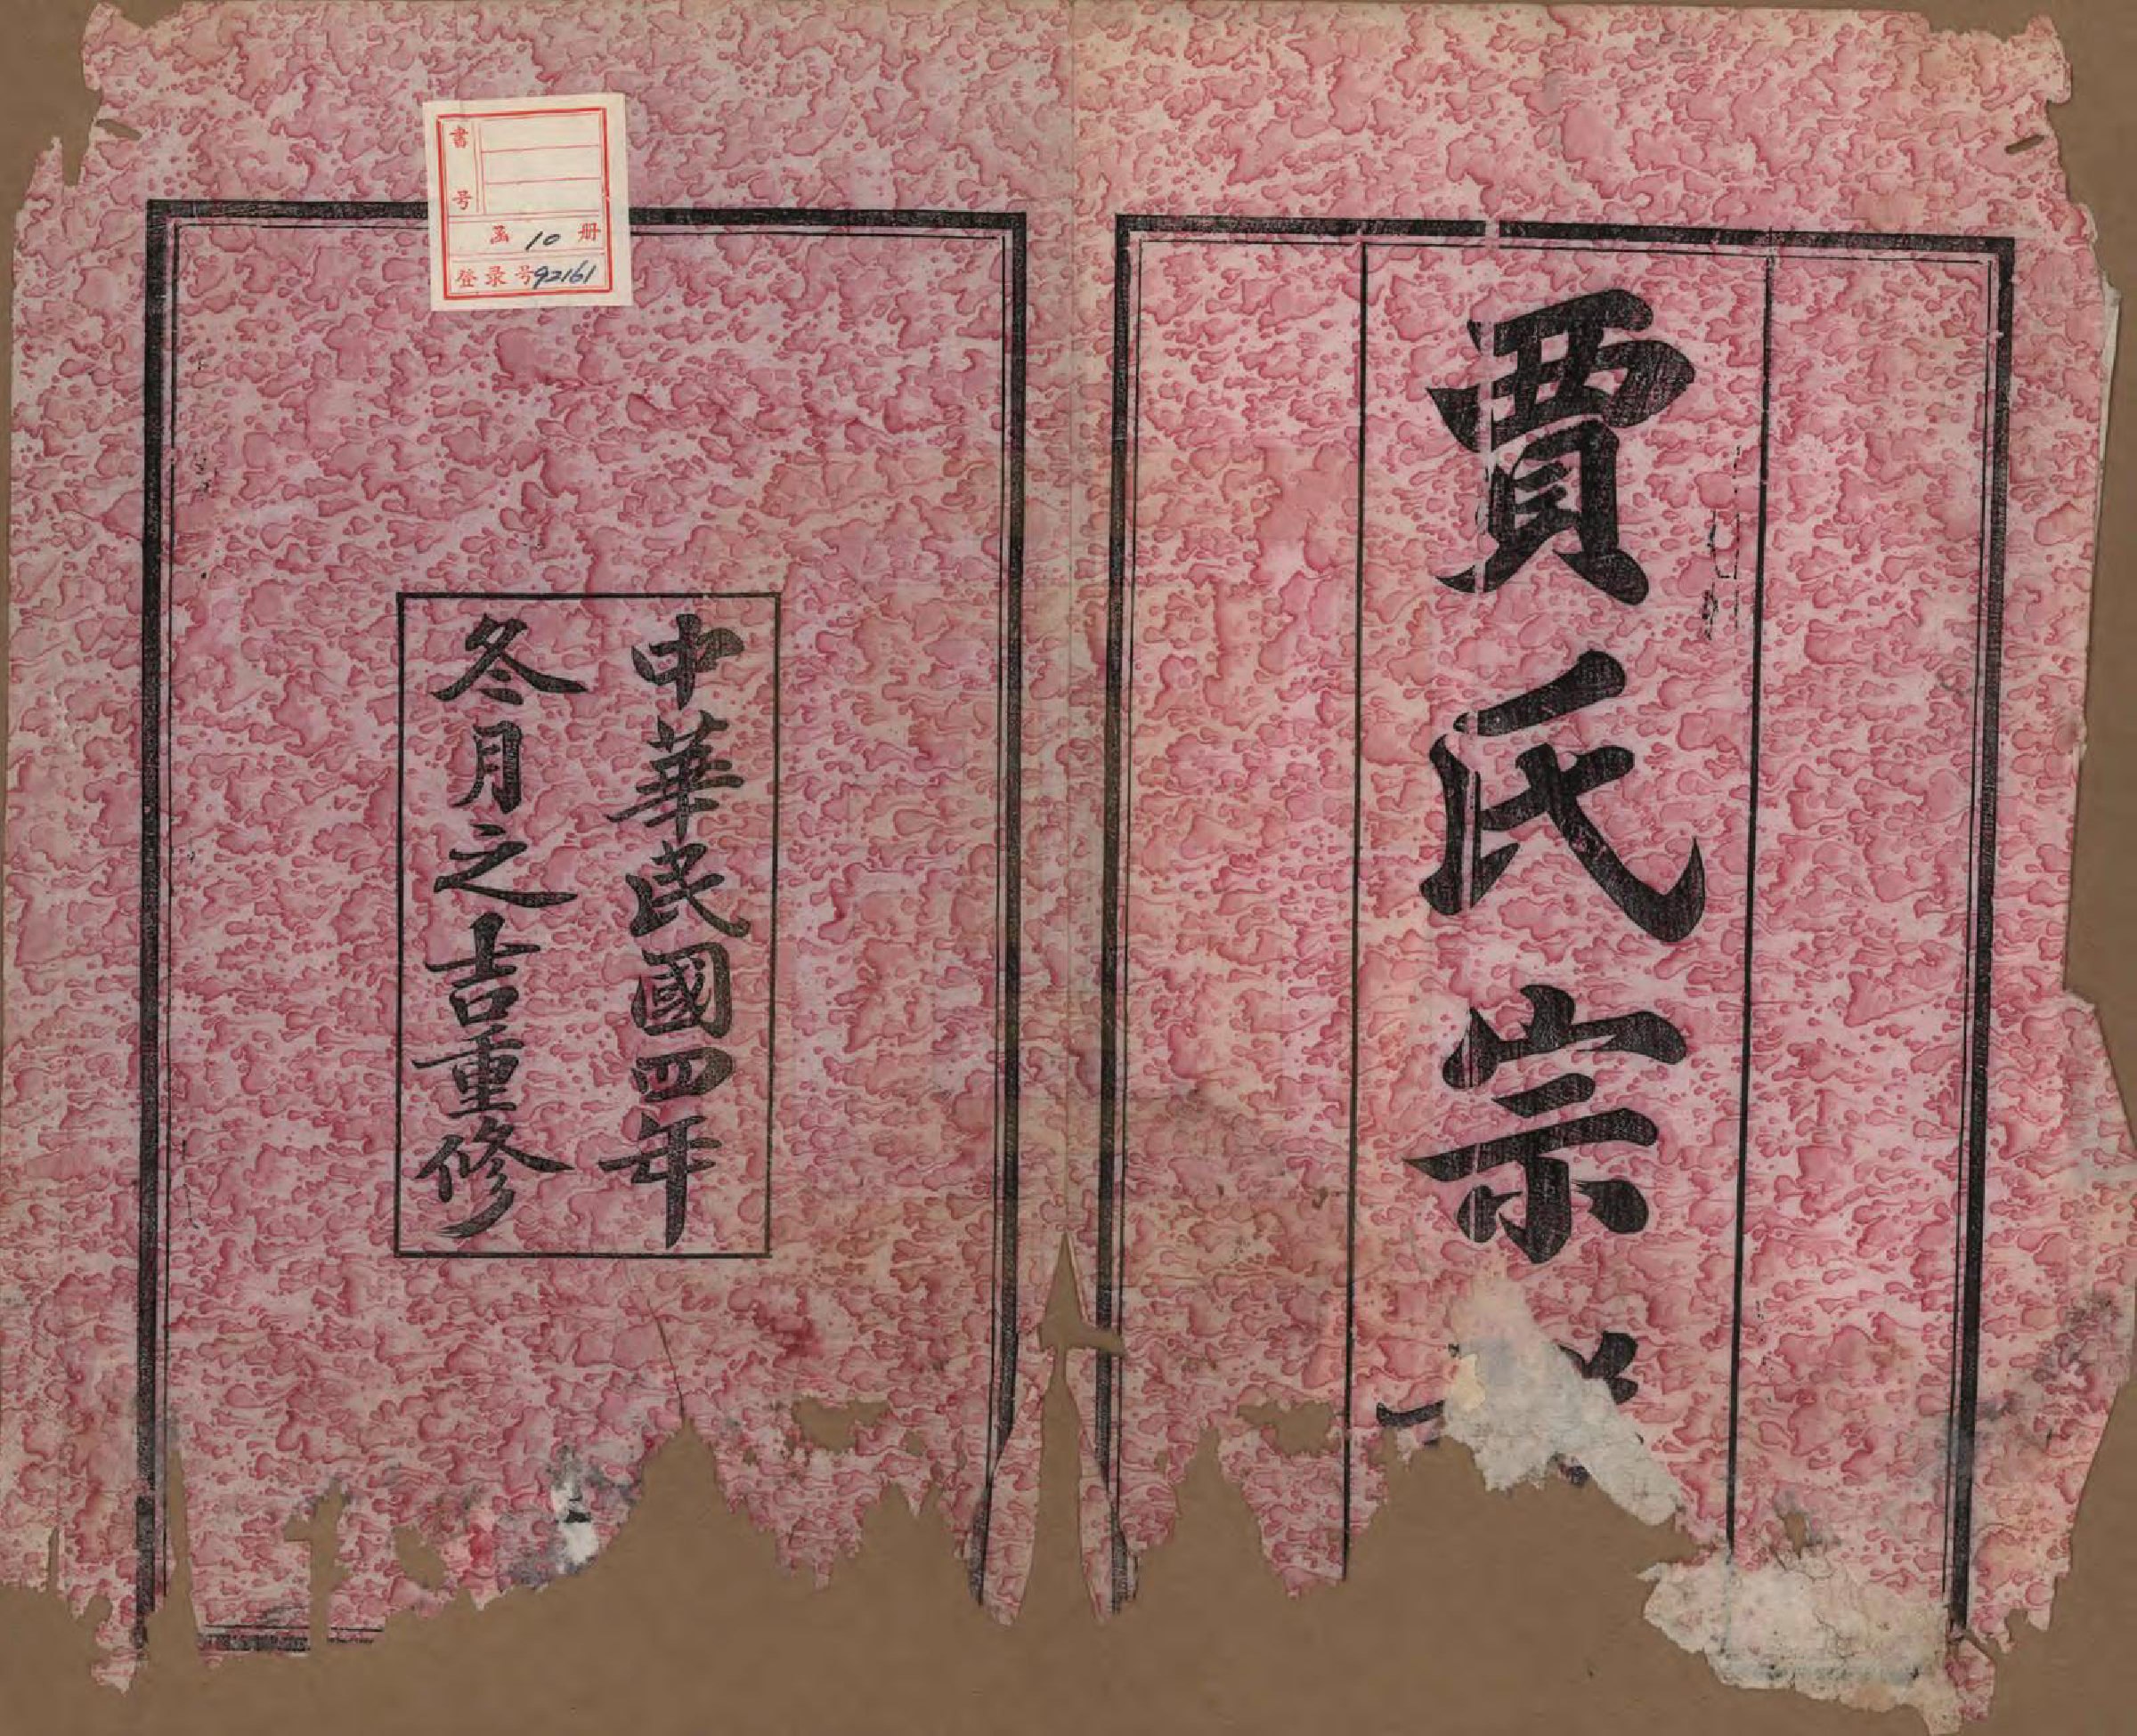 賈氏宗
中華民國四年
冬月之吉重修
書号
函 10 册
登录号92161